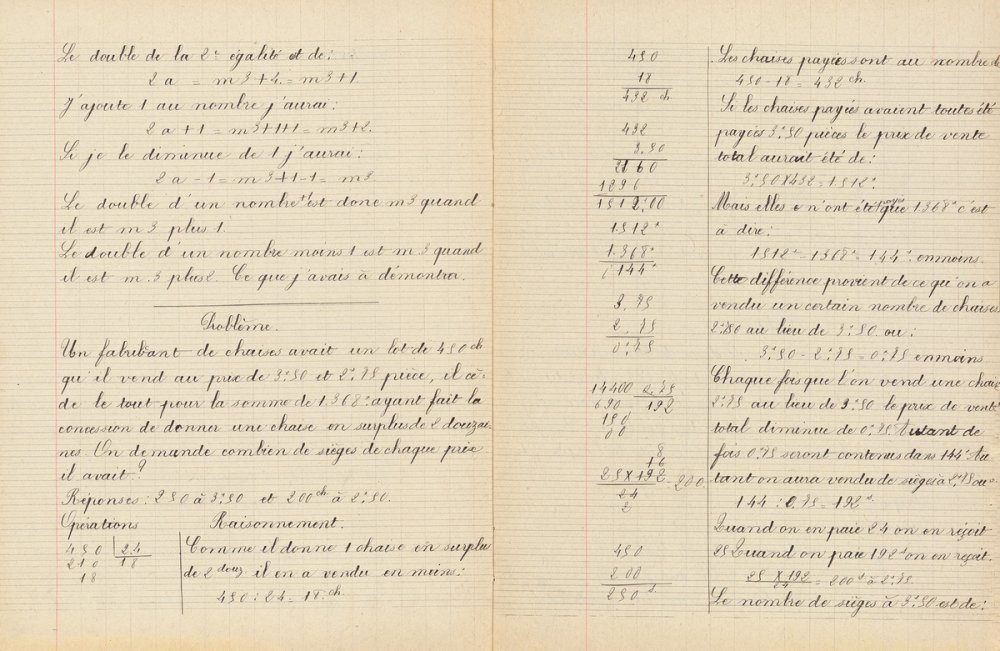 Le double de la 2e égalité est de:
2 a = m 3 + 4 = m 3 + 1.
J'ajoute 1 au nombre j'aurai:
2 a + 1 = m 3 + 1 + 1 = m 3 + 2.
Si je le diminue de 1 j'aurai:
2 a - 1 = m 3 + 1 - 1 = m 3.
Le double d'un nombre + 1 est donc m 3 quand
il est m 3 plus 1.
Le double d'un nombre moins 1 est m 3 quand
il est m. 3 plus 2. Ce que j'avais à démontrer.
Problème.
Un fabricant de chaises avait un lot de 450 ch.
qu'il vend au prix de 3f50 et 2f75 pièce, il cè-
de le tout pour la somme de 1.368f ayant fait la
concession de donner une chaise en surplus de 2 douzai-
nes. On demande combien de sièges de chaque prix
il avait?
Réponses: 250 à 3f50 et 200 ch. à 2f50.
Opérations Raisonnement.
450 | 24
210 18
18
Comme il donne 1 chaise en surplus
de 2 douz il en a vendu en moins:
450 : 24 = 18 ch.
450
18
432 ch
432
3.50
2160
1296
1512,00
1.512f
1.368f
144f
3,75
2,75
0f75
14400 0,75
690 192
150
00
8
16
25 X 192 = 200
24
2
450
200
250 s.
Les chaises payées sont au nombre de
450 - 18 = 432 ch.
Si les chaises payées avaient toutes été
payées 3f50 pièces le prix de vente
total aurait été de:
3f50 X 432 = 1512f.
Mais elles n'ont été payé que 1.368f c'est
à dire:
1512f - 1368f = 144f en moins.
Cette différence provient de ce qu'on a
vendu un certain nombre de chaises
2f80 au lieu de 3f50 ou:
3f50 - 2f75 = 0f75 en moins
Chaque fois que l'on vend une chaise
2f75 au lieu de 3f50 le prix de vente
total diminue de 0f75 Autant de
fois 0.75 seront contenus dans 144f Au
tant on aura vendu de sièges à 2f75 ou
144 : 0.75 = 192 s.
Quand on en paie 24 on en reçoit
25 Quand on paie 192 s on en reçoit.
25 X 192 = 200 s à 2f75.
24
Le nombre de sièges à 3f50 est de: